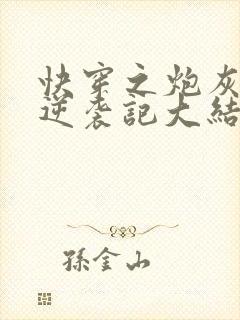 快穿之炮灰
逆袭記大結
孫金山